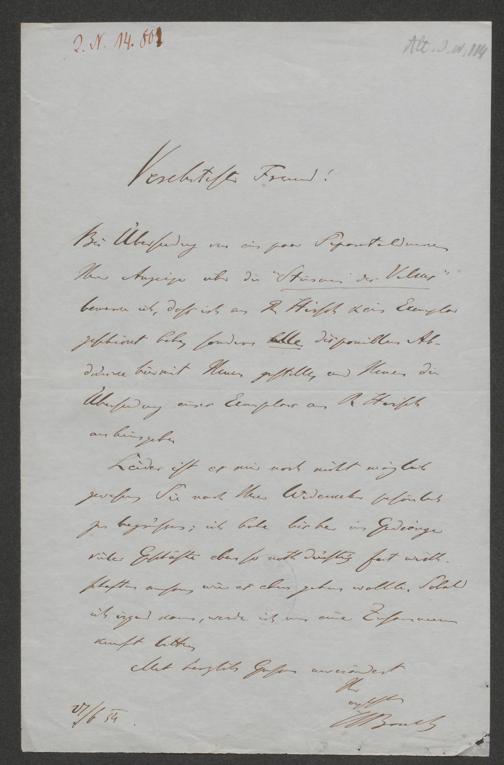 2. N. 14.801
Verehrtester Freund!
Bei Übersendung von ein paar Separatabdrücken
Ihrer Anzeige über die "Stimmen der Völker"
bemerke ich, daß ich an R Hirsch kein Exemplar
geschickt habe, sondern alle disponiblen Ab-
drücke hiermit Ihnen zustelle, und Ihnen die
Übersendung eines Exemplars an R Hirsch
anheimgebe.
Leider ist es mir noch nicht möglich
gewesen Sie nach Ihrer Wiederkehr persönlich
zu begrüßen; ich habe bisher im Gedränge
vieler Geschäfte
wie es eben gehen wollte. Sobald
ich irgend kann, werde ich um eine Zusammen
kunft bitten.
Mit herzlichen Grüßen unverändert
Ihr